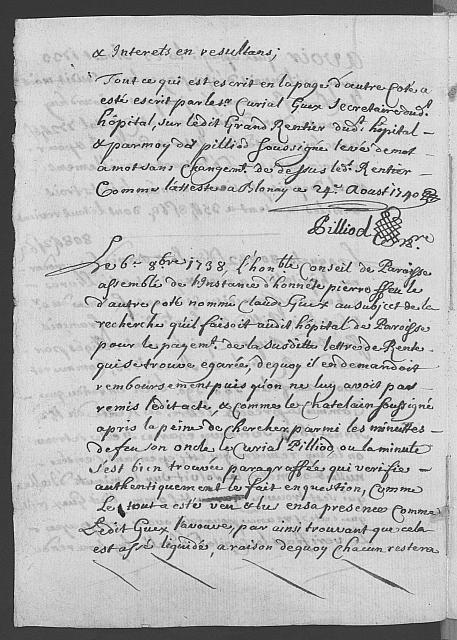 & Interets en resultans;
Tout ce qui est escrit en la page d'autre Coté a
esté escrit par le Sr. Curial Guex Secretaire dud.
hôpital, sur ledit Grand Rentier dud. hôpital –
& par moy dit pilliod soussigné levé de mot
a mot sans Changemt. de dessus led. Rentier
Comme l'atteste a Blonay ce 24e. Aoust 1740
Pilliod
Le 6e. 8bre 1738, l'honble Conseil de Paroisse
assemblé de l'instance d'honnete pierre ffeu le
d'autre Coté nommé Claude Guex au subject de la
recherche qu'il faisoit audit hôpital de Paroisse
pour le payemt. de la susditte lettre de Rente
qui se trouve egarée, dequoy il en demandoit
remboursement puis qu'on ne luy avoit pas
remis ledit acte, & comme le Chatelain soussigné
apres la peine de Chercher parmi les minuttes
de feu son oncle le Curial Pilliod, ou la minute
s'est bien trouvée paragraffée qui verifie –
authentiquement le fait en question, Comme
le tout a esté veu & lu en sa presence Comme
Ledit Guex l'avoue, par ainsi trouvant que cela
est assé liquide, a raison dequoy Chacun restera